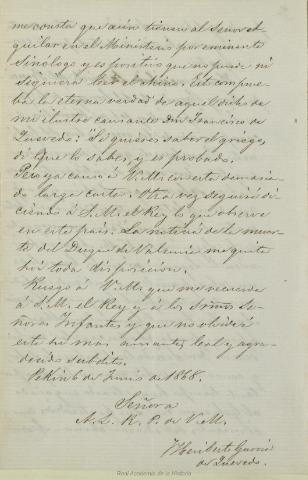 me consta que aún tienen al Señor A-
guilar en el Ministerio por eminente
Sinólogo y es positivo que no puede ni
siquiera leer el chino. Esto comprue-
ba la eterna verdad de aquel dicho de
mi ilustre causante Don Francisco de
Quevedo: "Si quieres saber el griego,
di que lo sabes, y es probado.
Pero ya canso á V.M. con esta demasia-
do larga carta. Otra vez seguiré di-
ciendo á S.M. el Rey lo que observe
en este pais. La noticia de la muer-
te del Duque de Valencia me quita
hoy toda disposicion.
Ruego á V.M. que me recuerde
á S.M. el Rey y á los Smos Se-
ñores Infantes y que no olvide á
este su más amante, leal y agra-
decido subdito.
Pekin 6 de Junio de 1868.
Señora
A. L. R. P. de V.M.
Heriberto Garcia
de Quevedo.
Real Academia de la Historia